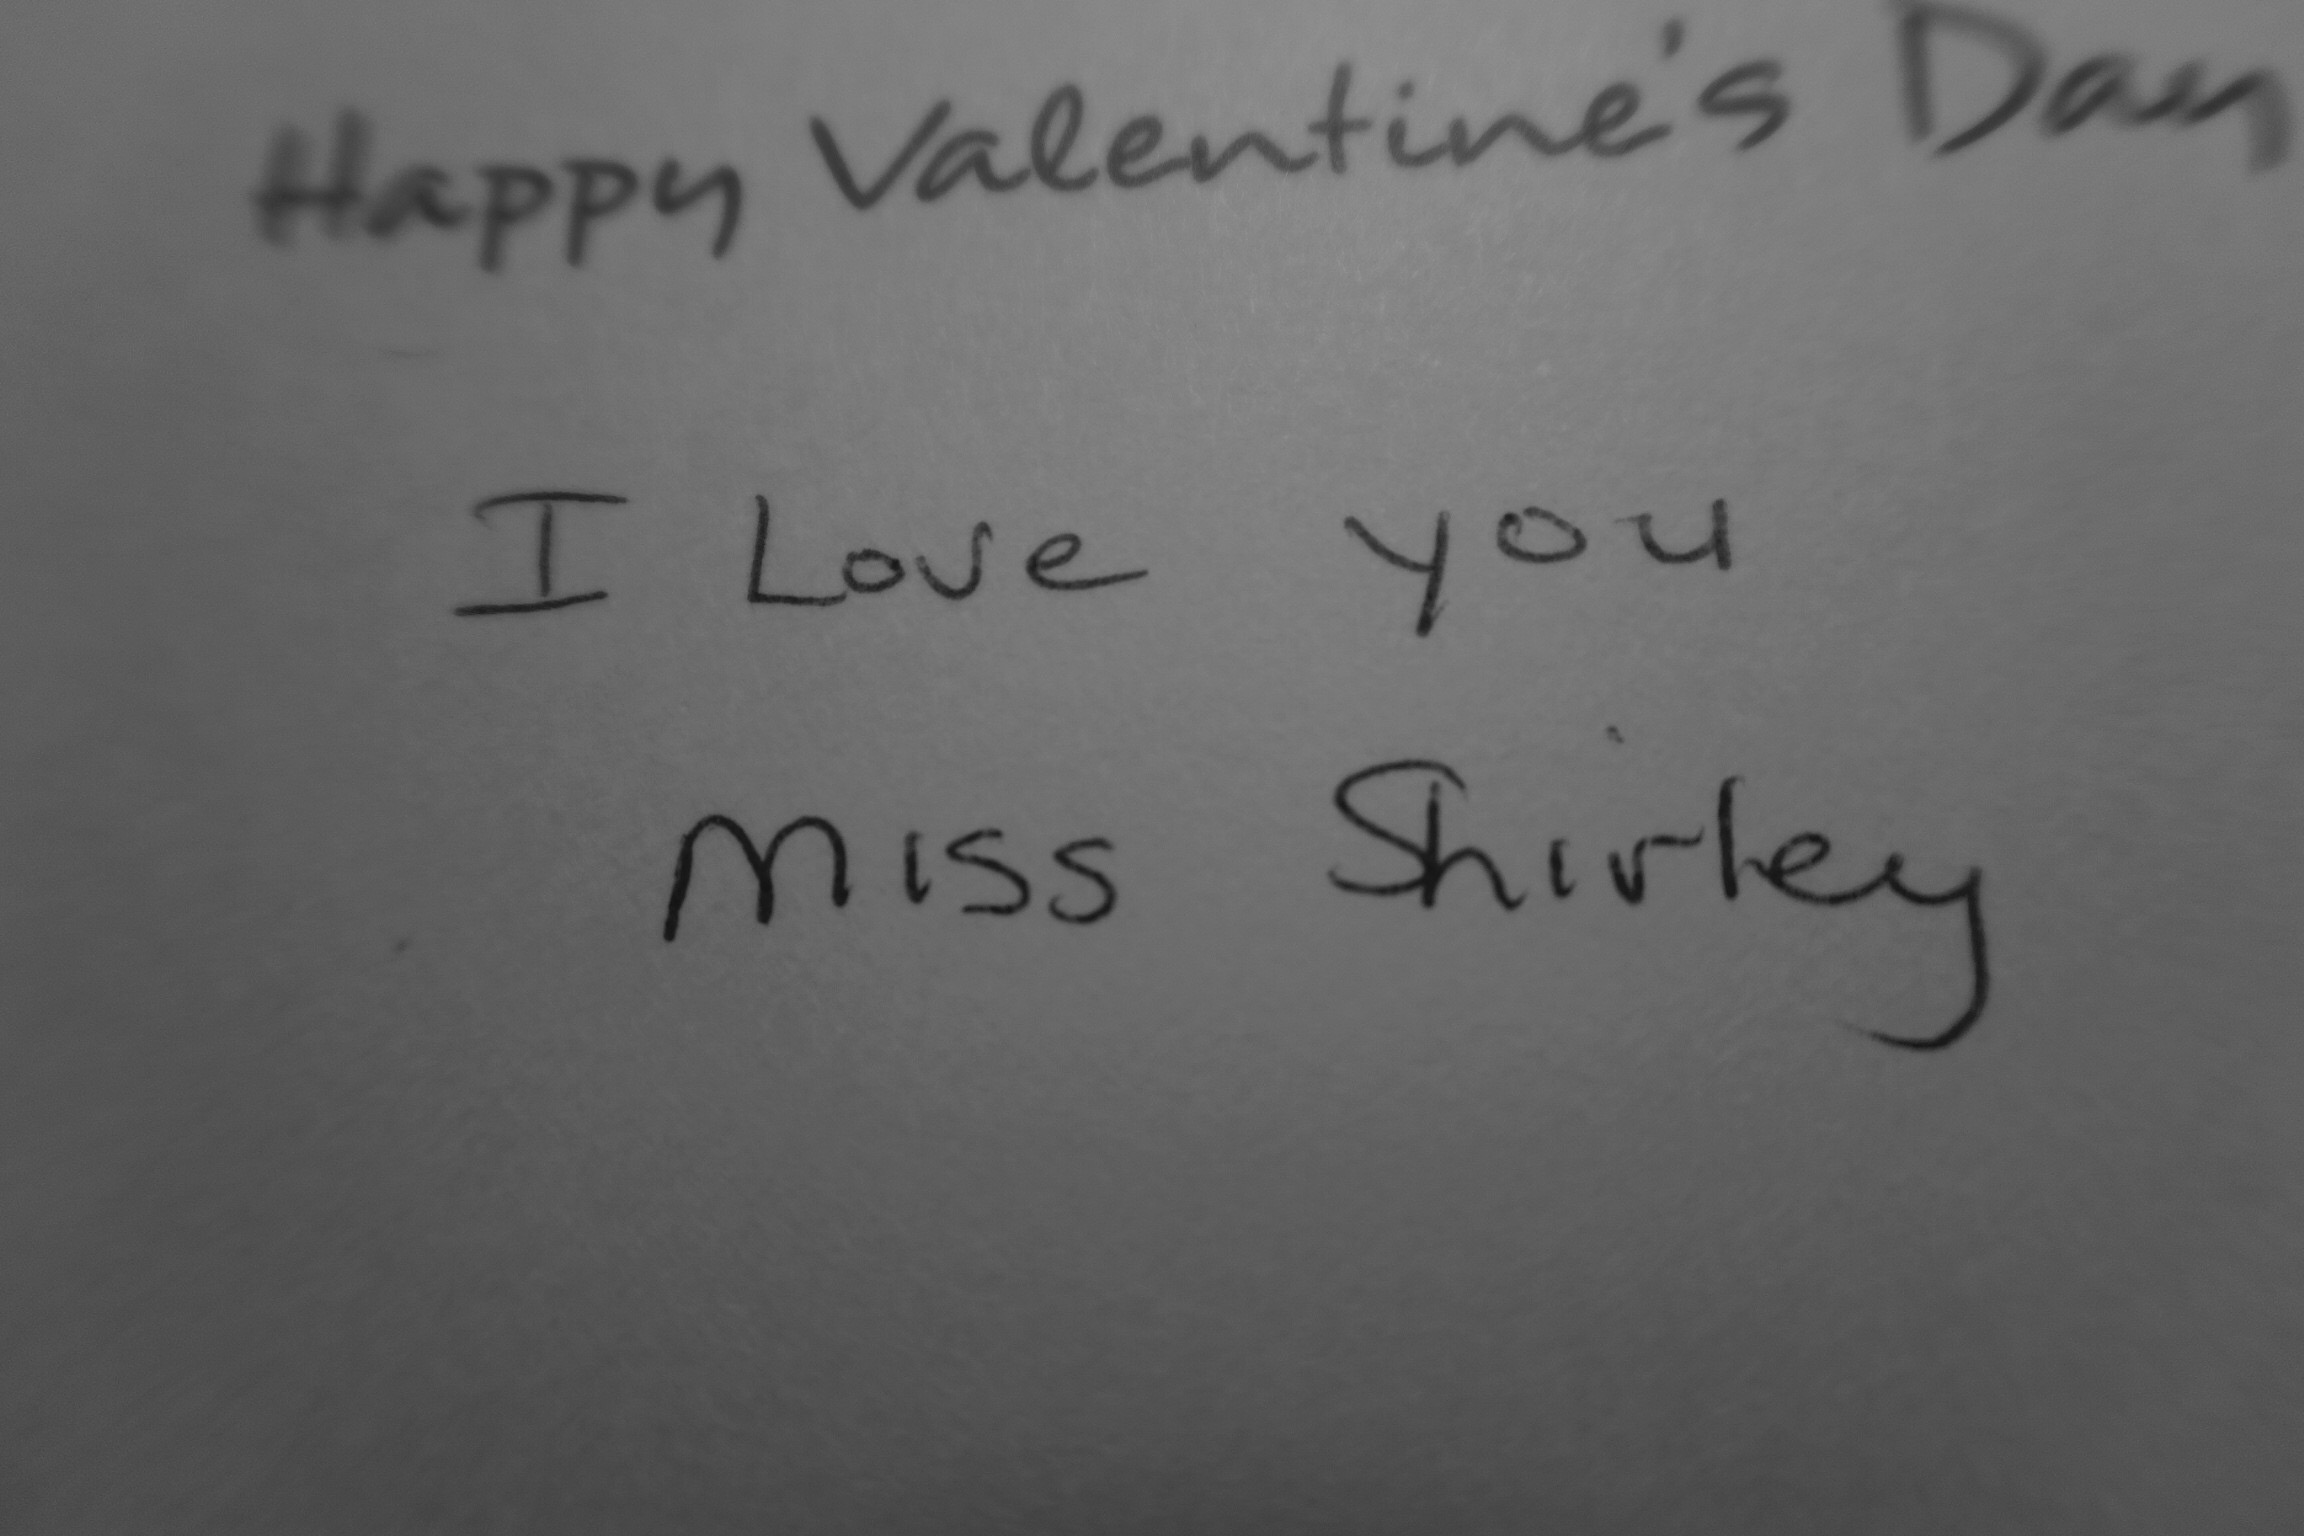 Happy Valentine's Day
I Love you
Miss Shirley